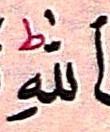 اللهِ ؕ